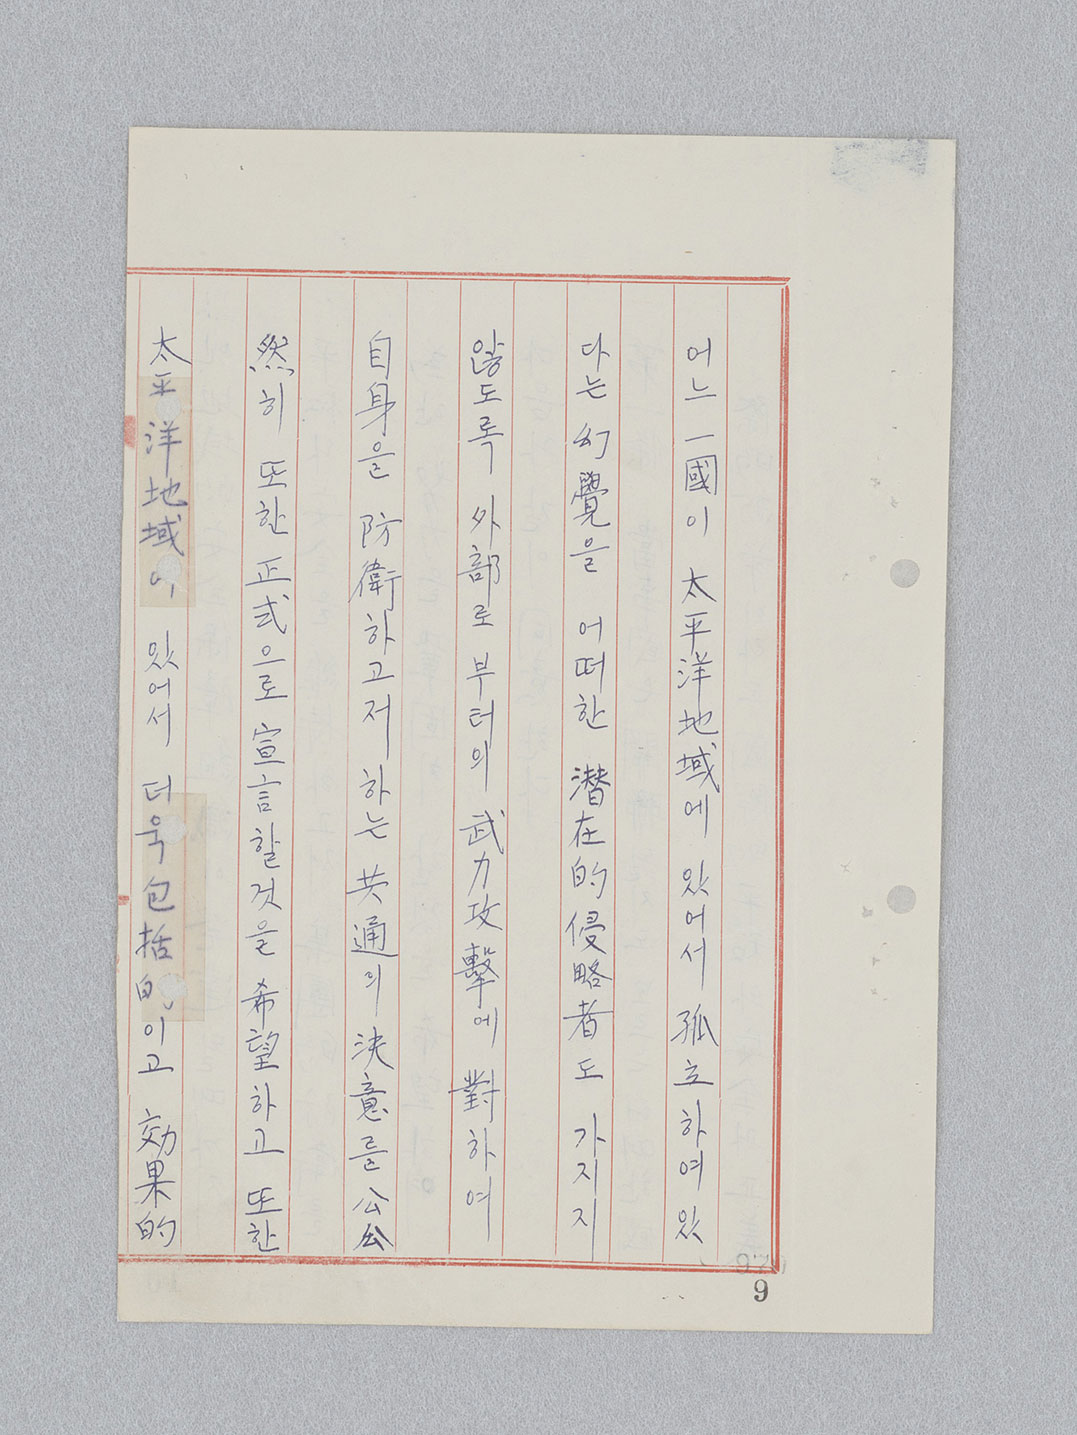 어느 一國이 太平洋地域에 있어서 孤立하여 있
다는 幻覺을 어떠한 潛在的侵略者도 가지지
않도록 外部로 부터의 武力攻擊에 對하여
自身을 防衛하고저 하는 共通의 決意를 公公
然히 또한 正式으로 宣言할것을 希望하고 또한
太平洋地域에 있어서 더욱 包括的이고 効果的
9